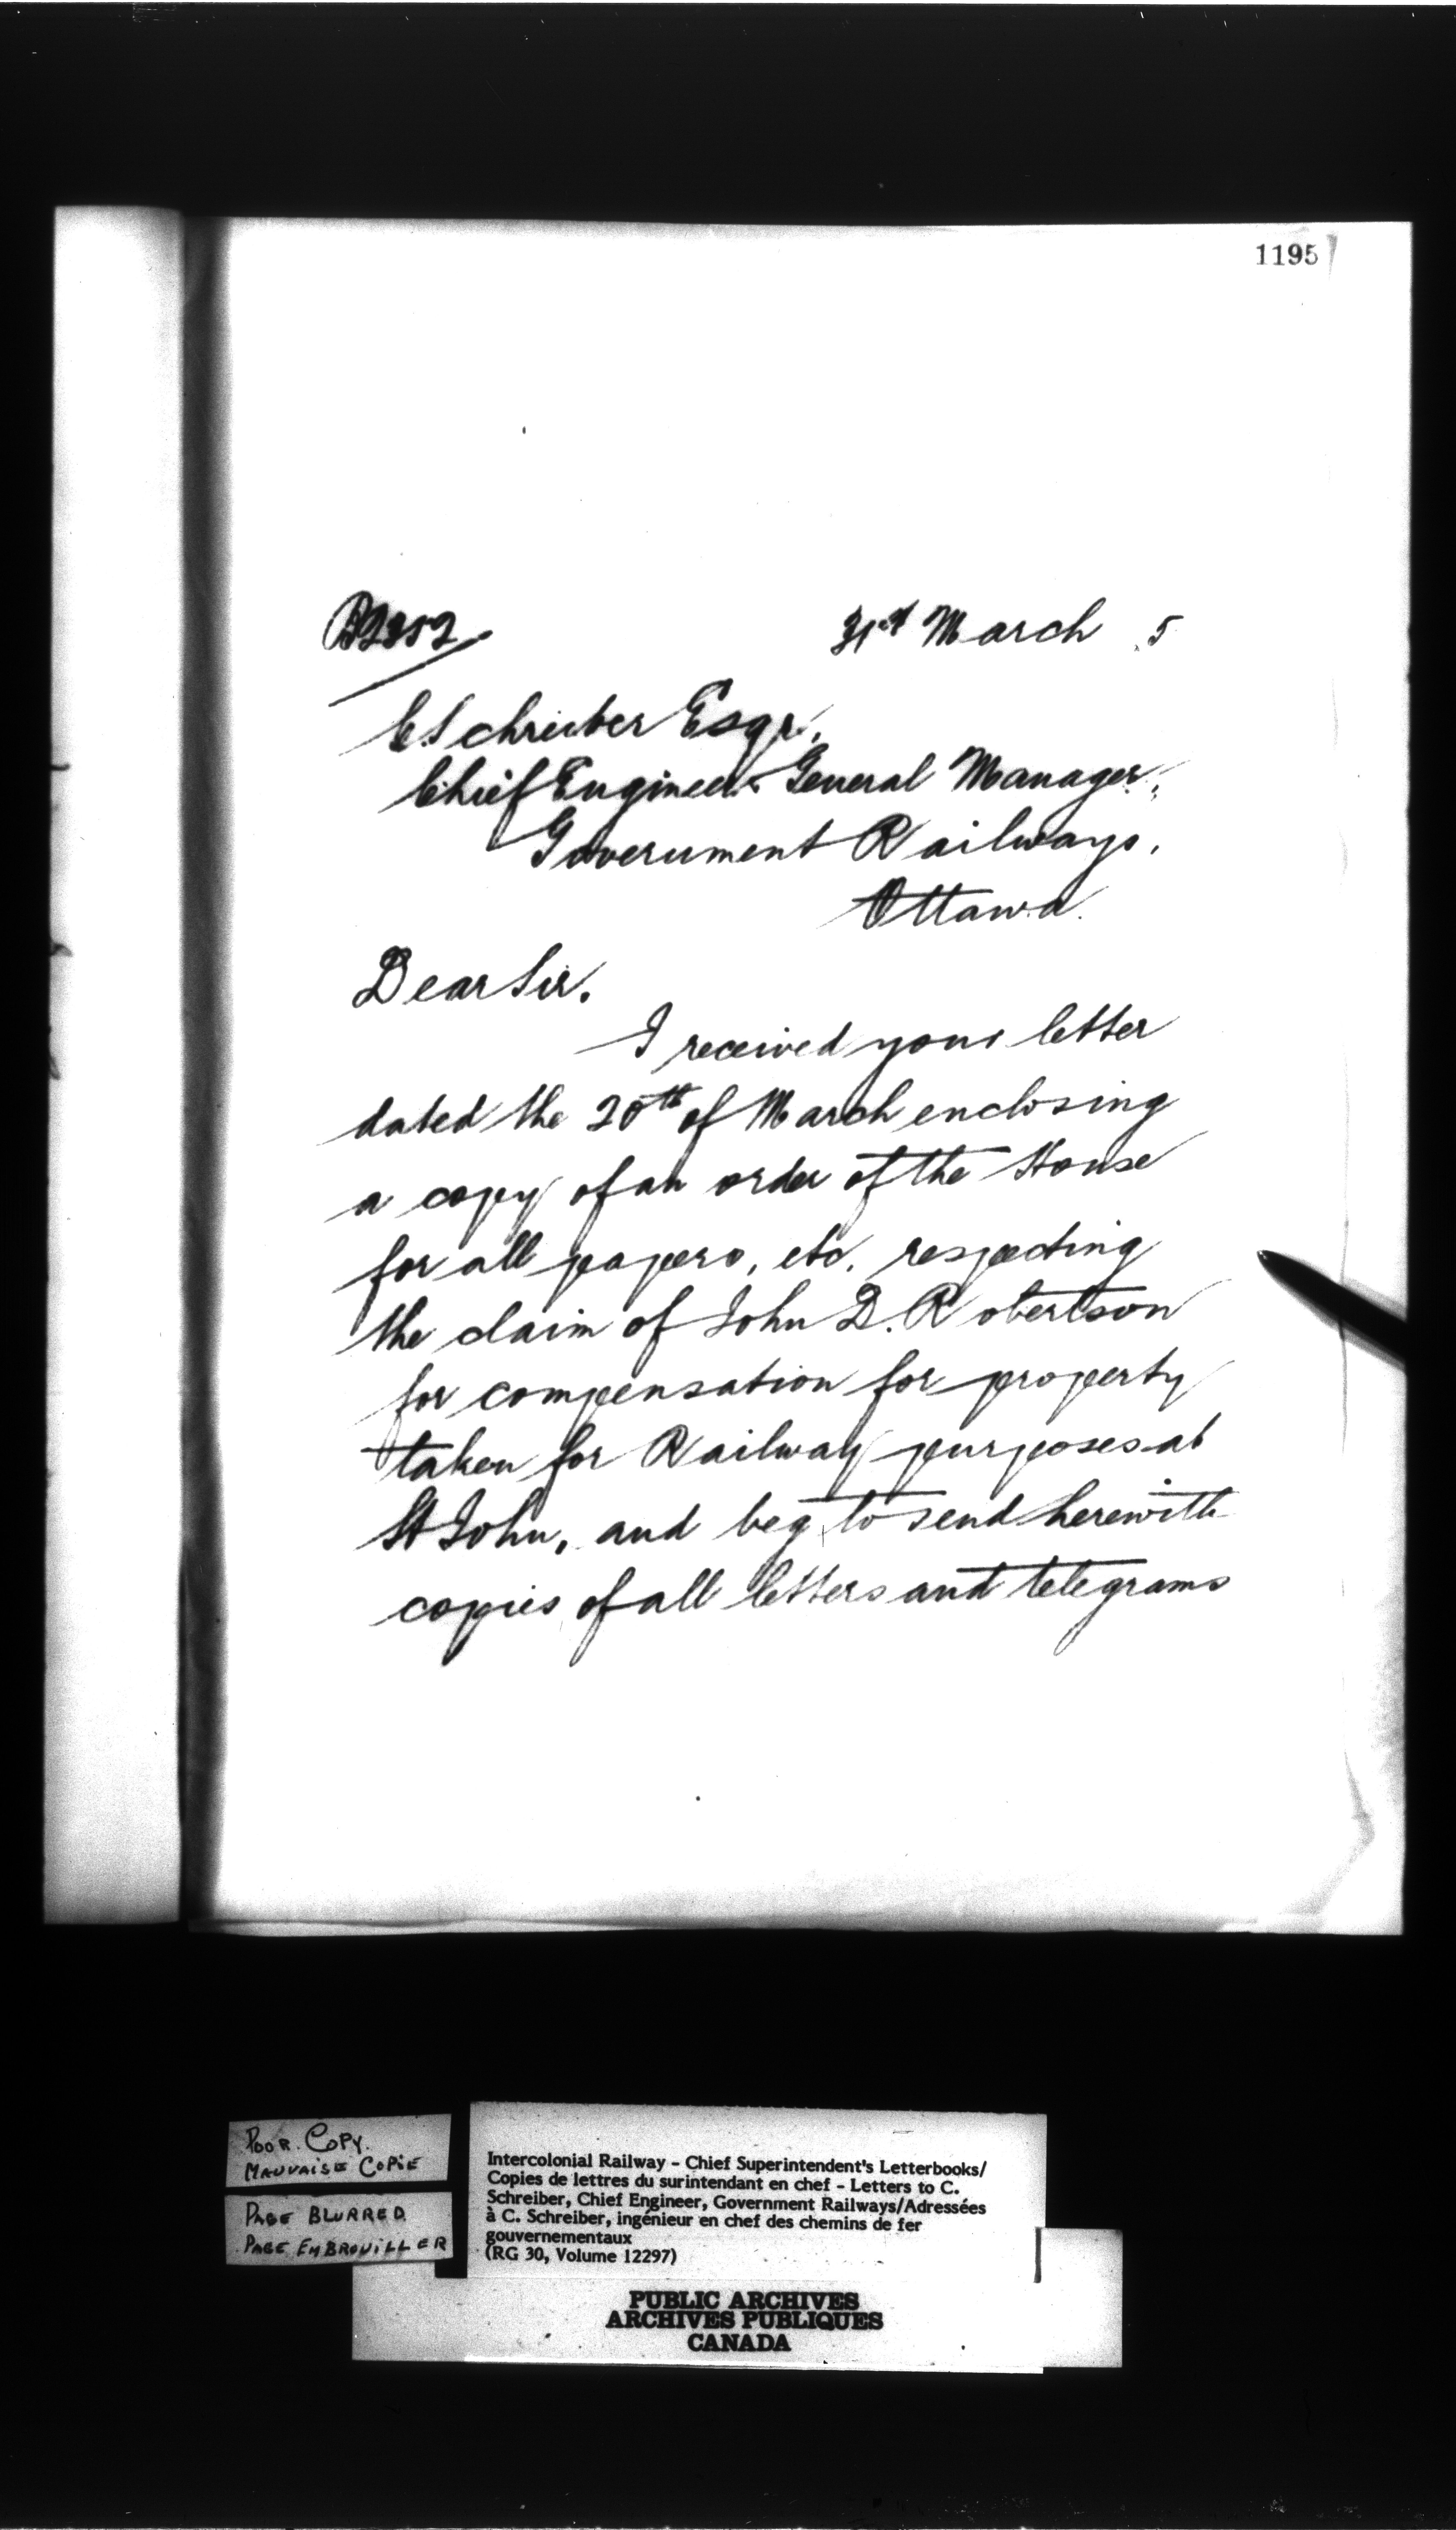 1195
31st March 5
C. Schreiber Esqr,
Chief Engineer & General Manager,
Government Railways,
Ottawa.
Dear Sir.
I received your letter
dated the 20th of March enclosing
a copy of an order of the House
for all papers, etc, respecting
the claim of John D. Robertson
for compensation for property
taken for Railway purposes at
St John, and beg to send herewith
copies of all letters and telegrams
POOR COPY.
MAUVAISE COPIE
PAGE BLURRED
PAGE EMBROUILLER
Intercolonial Railway – Chief Superintendent's Letterbooks/
Copies de lettres du surintendant en chef – Letters to C.
Schreiber, Chief Engineer, Government Railways/Adressées
à C. Schreiber, ingénieur en chef des chemins de fer
gouvernementaux
(RG 30, Volume 12297)
PUBLIC ARCHIVES
ARCHIVES PUBLIQUES
CANADA